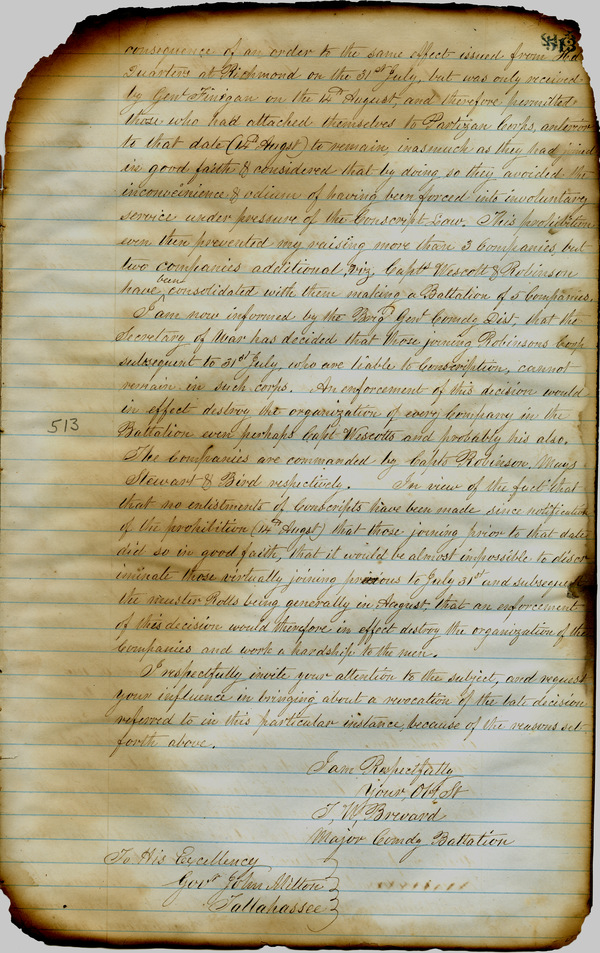 513
consequence of an order to the same effect issued from Hd.
Quarters at Richmond on the 31st July, but was only received
by Genl Finegan on the 14th August, and therefore permitted
those who had attached themselves to Partizan Corps, anterior
to that date (14th Augst) to remain, inasmuch as they had joined
in good faith & considered that by doing so they avoided the
inconvenience & odium of having been forced into involuntary
service under pressure of the Conscript Law. This prohibition
even then prevented my raising more than 3 Companies, but
two companies additional, viz, Capts Wescott & Robinson
have been consolidated with them making a Battalion of 5 Companies.
I am now informed by the Brigd Genl Comdg Dist, that the
Secretary of War has decided that those joining Robinsons Corp
subsequent to 31st July, who are liable to Conscription, cannot
remain in such corps. An enforcement of this decision would
in effect destroy the organization of every Company in the
513
Battalion even perhaps Capt Wescotts and probably his also.
The Companies are commanded by Capts Robinson, Mays
Stewart & Bird respectively. In view of the fact that
that no enlistments of Conscripts have been made since notification
of the prohibition (14th Augst) that those joining prior to that date
did so in good faith, that it would be almost impossible to discr
iminate those virtually joining previous to July 31st and subsequent
the muster Rolls being generally in August, that an enforcement
of this decision would therefore in effect destroy the organization of the
Companies and work a hardship to the men.
I respectfully invite your attention to the subject, and request
your influence in bringing about a revocation of the late decision
referred to in this particular instance, because of the reasons set
forth above.
I am Respectfully
Your, Obt St
T, W, Brevard
Major Comdg Battalion
To His Excellency
Govr John Milton
Tallahassee